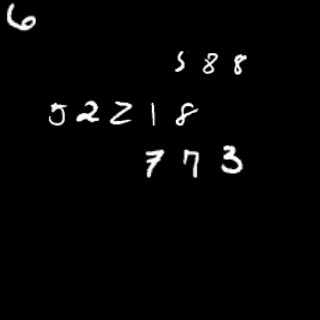 6
5 8 8
5 2 2 1 8
7 7 3